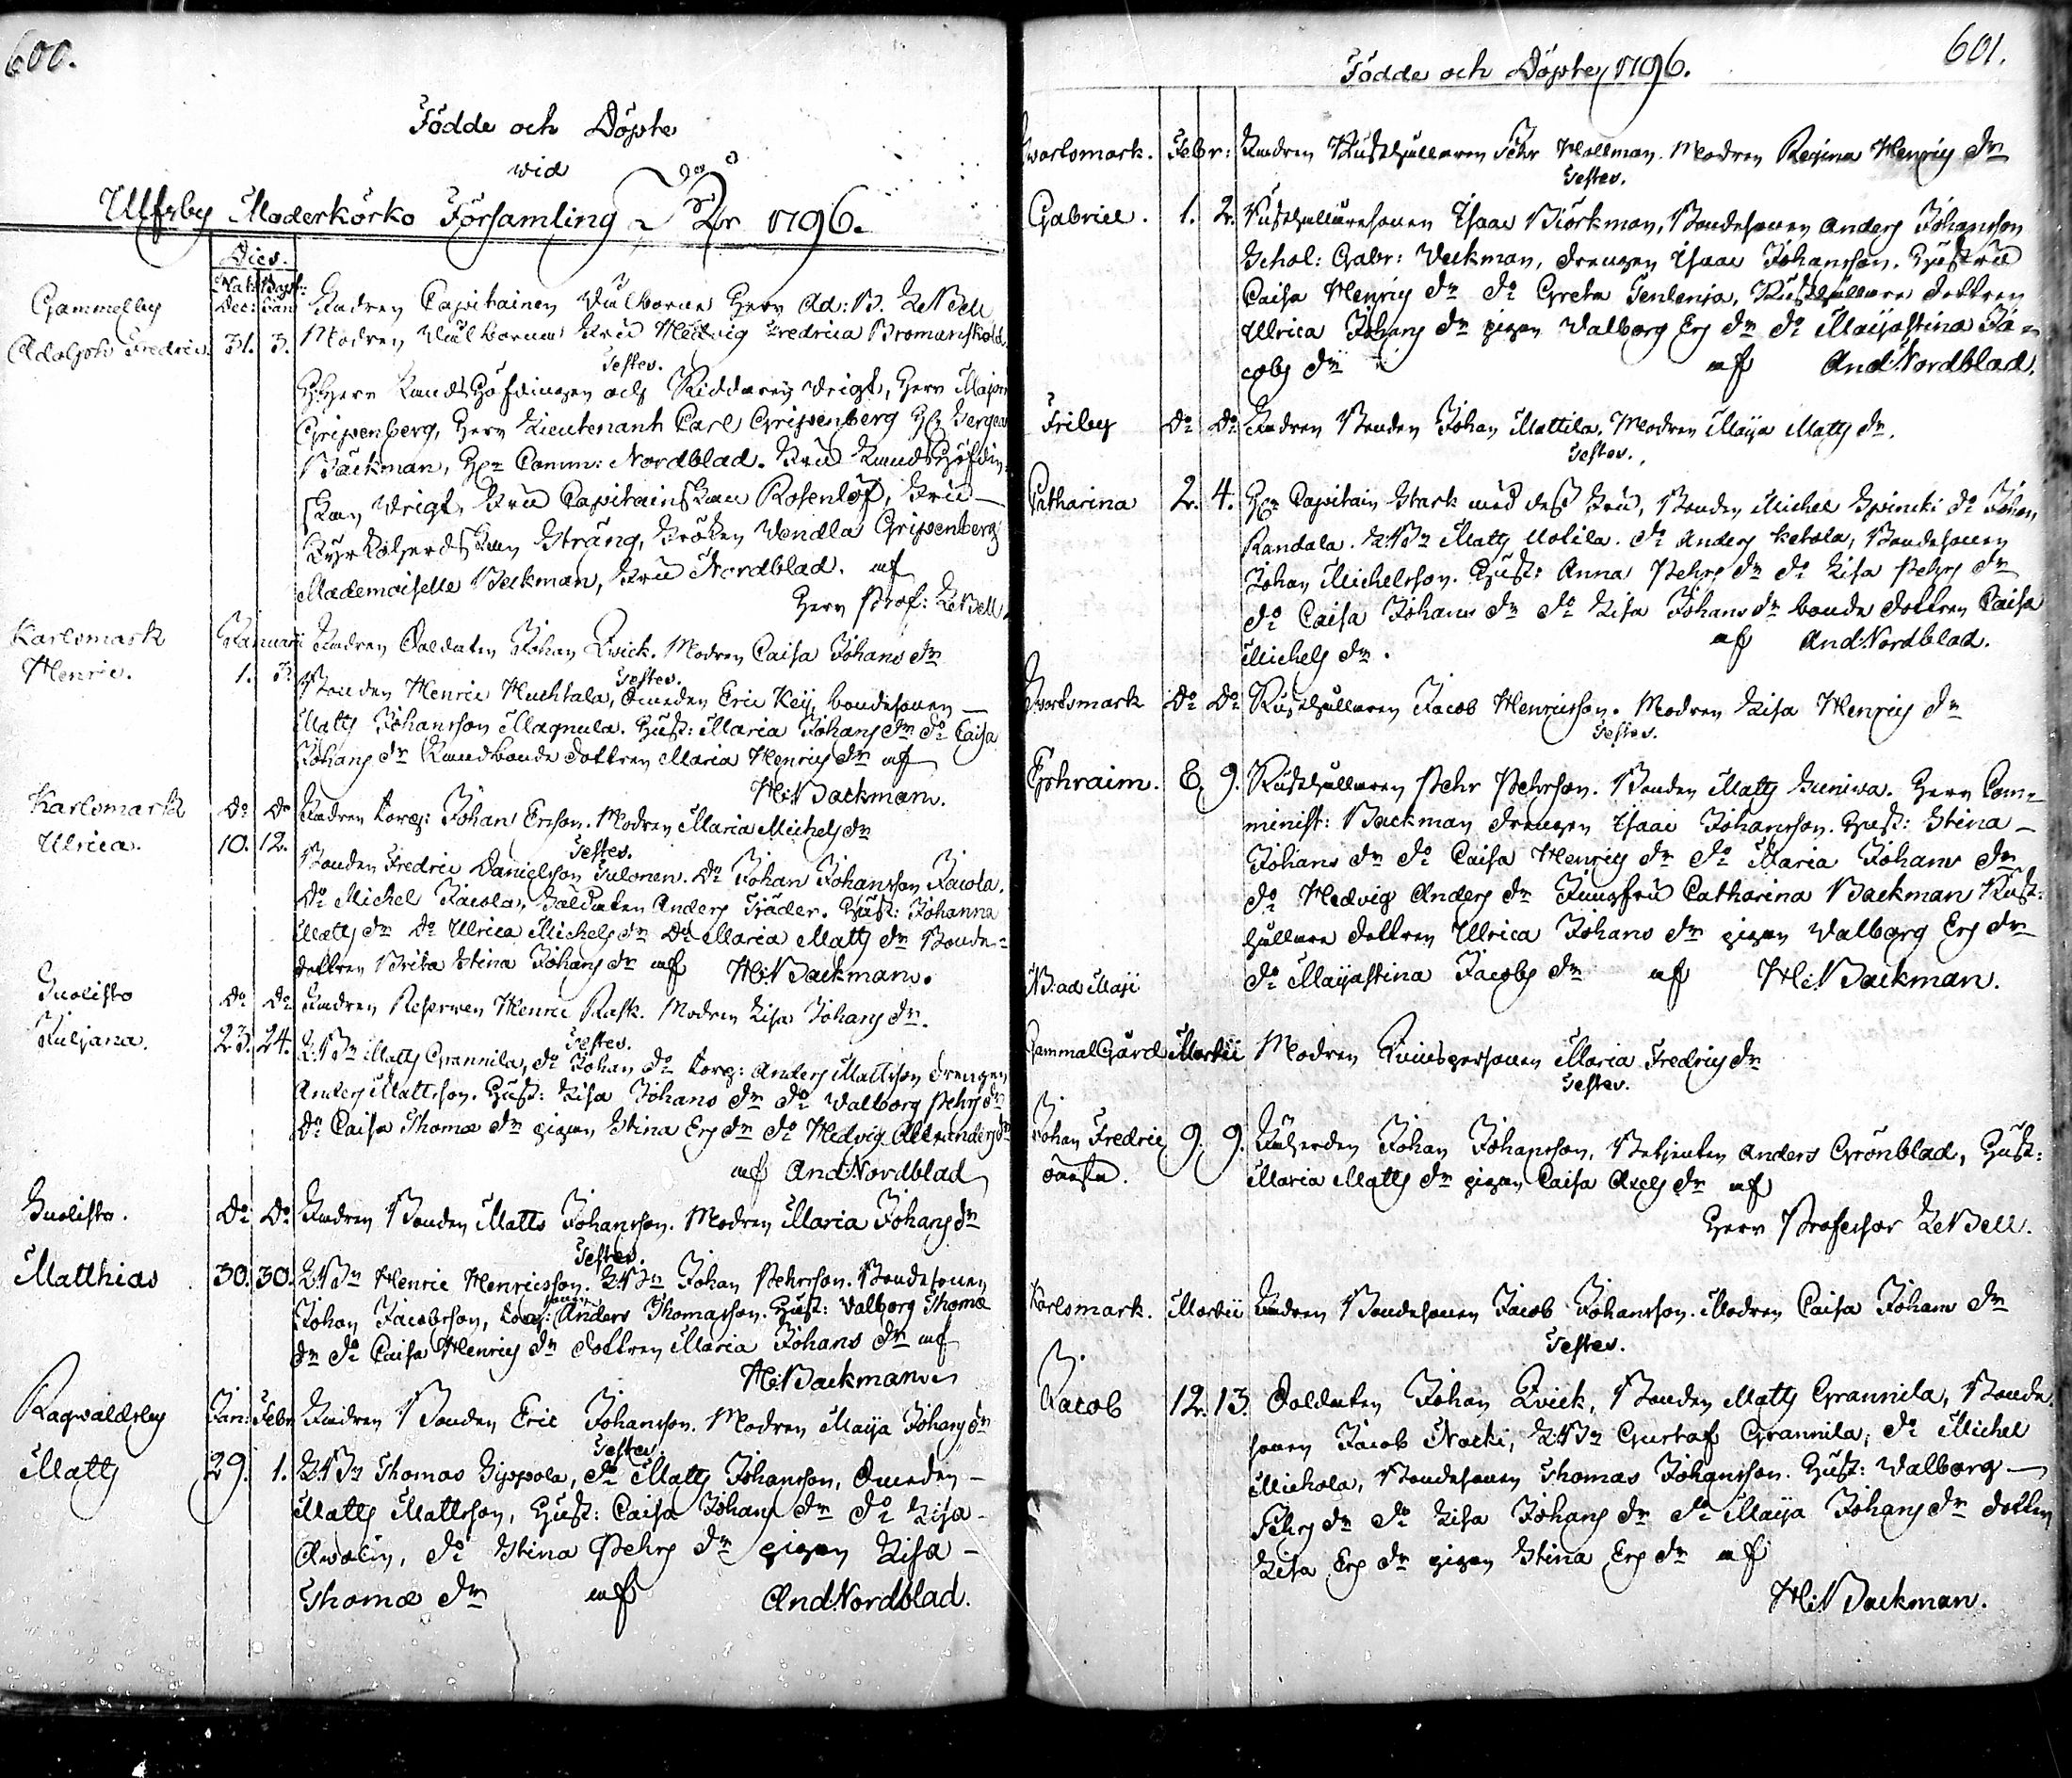 600.
Födde och Döpte
wid
Ulfsby Moderkörko Församling År 1796.
Dies.
Nat: Bapt:
Gammelby Dec: Jan: Fadren Capitainen Wälborne Herr Ad: B. LeBell
Adolph Fredric. 31. 3. Modren Wälborna Fru Hedvig Fredrica Bromanskiöld.
Testes.
Herr Landshöfdingen och Riddaren Wrigt, Herr Major
Gripenberg, Herr Lieutenant Carl Gripenberg Hr Sergeant
Bäckman, Hr Comm: Nordblad. Fru Landshöfdin-
skan Wrigt, Fru Capitainskan Rosenlöf, Fru
Kyrkoherdskan Sträng, Fröken Wendla Gripenberg
Mademoiselle Beckman, Fru Nordblad. af
Herr Prof: LeBell.
Karlsmark Januari Fadren Soldaten Johan Qvick. Modren Caisa Johans dr
Henric. 1. 3. Testes.
Bonden Henric Huchtala, Smeden Eric Keij, bondesonen
Matts Johansson Magnula. Hust: Maria Johans dr do Caisa
Johans dr Landbonde dottren Maria Henrics dr af
H: Backman.
Karlsmark do do Fadren torp: Johan Ersson. Modren Maria Michels dr
Ulrica. 10. 12. Testes.
Bonden Fredric Danielsson Sulonen. do Johan Johansson Jacola.
do Michel Jacola, Soldaten Anders Träder. Hust: Johanna
Matts dr do Ulrica Michels dr do Maria Matts dr Bonde-
dottren Brita Stina Johans dr af H: Backman.
Suolisto do do Fadren Reserven Henric Rask. Modren Lisa Johans dr.
Juliana. 23. 24. Testes.
LBn Matts Grannila, do Johan do torp: Anders Mattsson drengen
Anders Mattsson. Hust: Lisa Johans dr do Walborg Pehrs dr
do Caisa Thomæ dr pigan Stina Ers dr do Hedvig Alexanders dr
af And: Nordblad
Suolisto. do do Fadren Bonden Matts Johansson. Modren Maria Johans dr
Testes.
Matthias 30. 30. LBn Henric Henricsson. LBn Johan Pehrsson. Bondesonen
Johan Jacobsson, torp: sonen Anders Thomasson. Hust: Valborg Thomæ
dr do Caisa Henrics dr dottren Maria Johans dr af
H: Backman
Ragwaldsby Jan: Febr Fadren Bonden Eric Johansson. Modren Maija Johans dr
Testes.
Matts 29. 1. LBn Thomas Sippola, do Matts Johansson, Smeden
Matts Mattsson, Hust: Caisa Johans dr do Lisa
Qwolin, do Stina Pehrs dr pigan Lisa
Thomæ dr af And: Nordblad.
601.
Födde och Döpte 1796.
Swartsmark. Febr: Fadren Rusthållaren Pehr Hollman. Modren Regina Henrics dr
Testes.
Gabriel. 1. 2. Rusthållaresonen Isaac Björkman, Bondesonen Anders Johansson
Schol: Gabr: Weckman, drengen Isaac Johansson. Hustru
Caisa Henrics dr do Greta Tentenia, Rusthållare dottren
Ulrica Johans dr pigan Valborg Ers dr do Maijastina Ja-
cobs dr af And: Nordblad.
Friby do do Fadren Bonden Johan Mattila, Modren Maija Matts dr.
Testes.
Catharina 2. 4. Hr Capitain Stark med dess Fru, Bonden Michel Spincki do Johan
Randala. LBn Matts Uolila. do Anders Ketola, Bondesonen
Johan Michelsson. Hust: Anna Pehrs dr do Lisa Pehrs dr
do Caisa Johans dr do Lisa Johans dr bonde dottren Caisa
Michels dr. af And: Nordblad.
Swartsmark do do Rusthållaren Jacob Henricsson. Modren Lisa Henrics dr
Testes.
Ephraim. 6. 9. Rusthållaren Pehr Pehrsson. Bonden Matts Suniwa. Herr Com-
minist: Backman drengen Isaac Johansson. Hust: Stina
Johans dr do Caisa Henrics dr do Maria Johans dr
do Hedvig Anders dr Jungfru Catharina Backman Rust-
hållare dottren Ulrica Johans dr pigan Valborg Ers dr
do Maijastina Jacobs dr af H: Backman.
NB: ad Maji
GammalGård Martii Modren Qvinspersonen Maria Fredrics dr
Testes.
Johan Fredric 9. 9. Johan Johansson, Betjenten Anders Grönblad, Hust:
oäkta. Maria Matts dr pigan Caisa Axels dr af
Herr Professor LeBell.
Karlsmark. Martii Fadren Bondesonen Jacob Johansson. Modren Caisa Johans dr
Testes.
Jacob 12. 13. Soldaten Johan Qvick, Bonden Matts Grannila, Bonde
sonen Jacob Nacki, LBn Gustaf Grannila, do Michel
Michola, Bondesonen Thomas Johansson. Hust: Walborg
Pehrs dr do Lisa Johans dr do Maija Johans dr dottren
Lisa Ers dr pigan Stina Ers dr af
H: Backman.